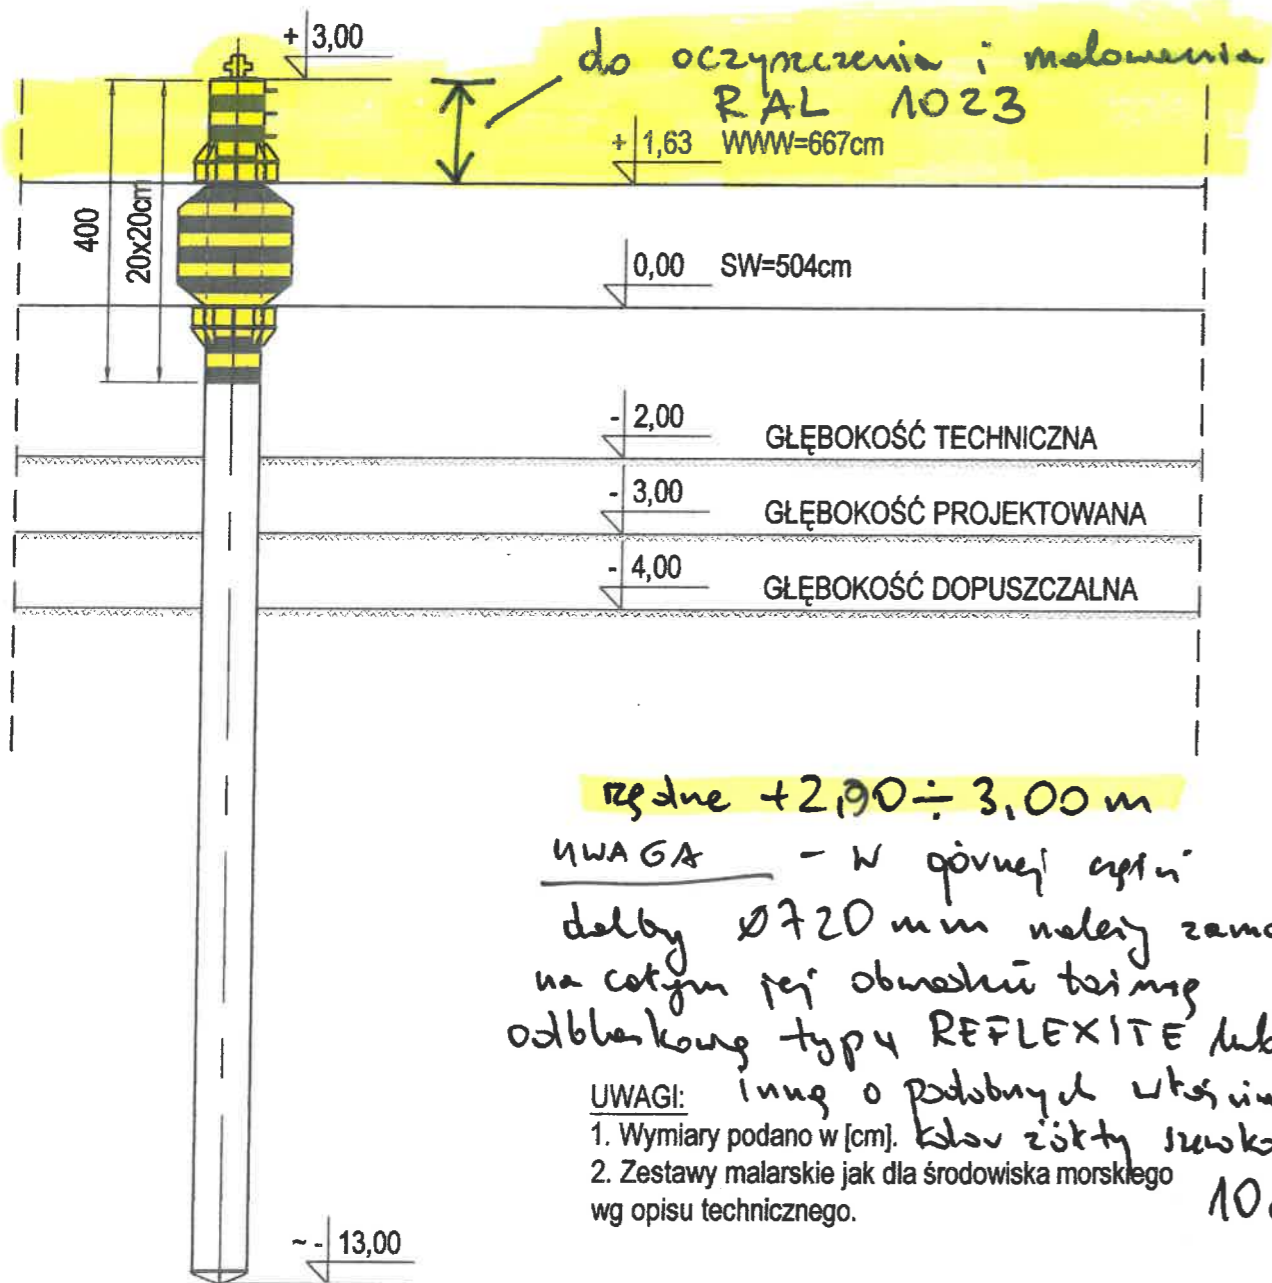 + 3,00
do oczyszczenia i malowania
RAL 1023
+ 1,63 WWW=667cm
400
20x20cm
0,00 SW=504cm
- 2,00
GŁĘBOKOŚĆ TECHNICZNA
- 3,00
GŁĘBOKOŚĆ PROJEKTOWANA
- 4,00
GŁĘBOKOŚĆ DOPUSZCZALNA
rzędne +2,90 ÷ 3,00 m
UWAGA - W górnej części
dalby Ø720 mm należy zamo
na całym jej obwodzie taśmę
odblaskową typu REFLEXITE lub
inną o podobnych właściw
UWAGI:
1. Wymiary podano w [cm]. kolor żółty szeroko
2. Zestawy malarskie jak dla środowiska morskiego
wg opisu technicznego. 10
~ - 13,00